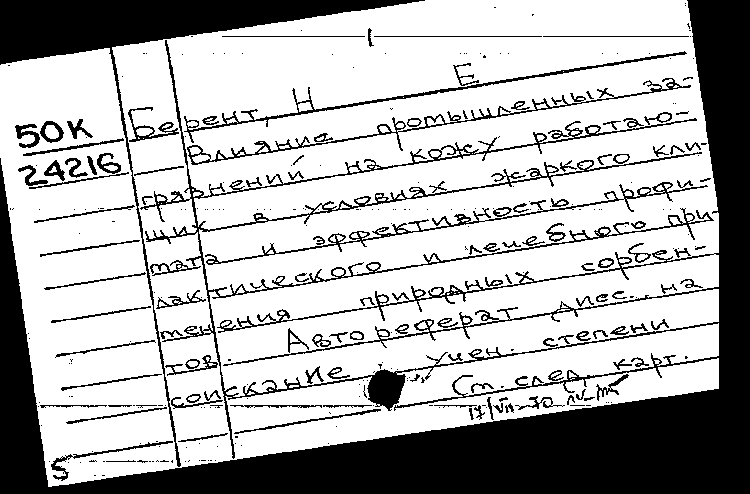 50К
24216
Берент, Н Е.
Влияние промышленных за-
грязнений на кожу работаю-
щих в условиях жаркого кли-
мата и эффективность профи-
лактического и лечебного при-
менения природных сорбен-
тов. Автореферат дисс. на
соискание учен. степени
См. след. карт.
17/VII-70
5